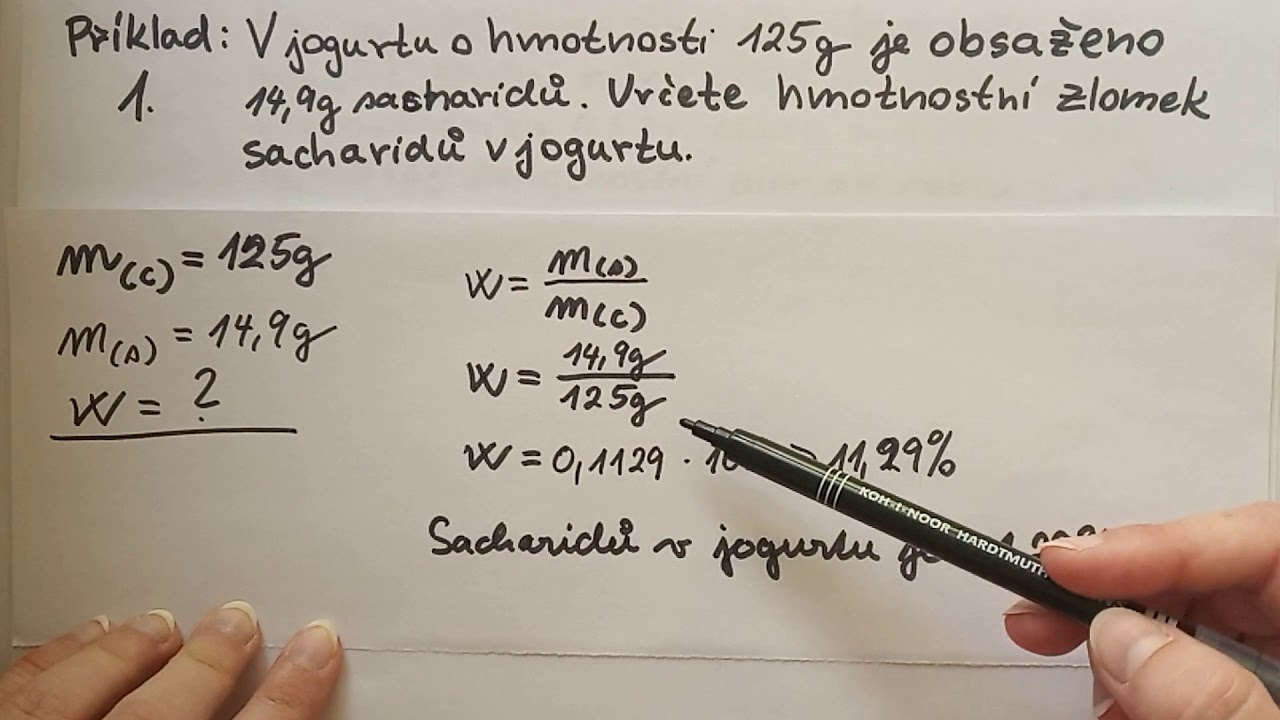 Příklad: V jogurtu o hmotnosti 125g je obsaženo
1. 14,9g sacharidů. Určete hmotnostní zlomek
sacharidů v jogurtu.
m(C) = 125g
m(A) = 14,9g
w = ?
w = m(A) / m(C)
w = 14,9g / 125g
w = 0,1129 · = 11,29%
Sacharidů v jogurtu je
KOH-I-NOOR HARDTMUTH